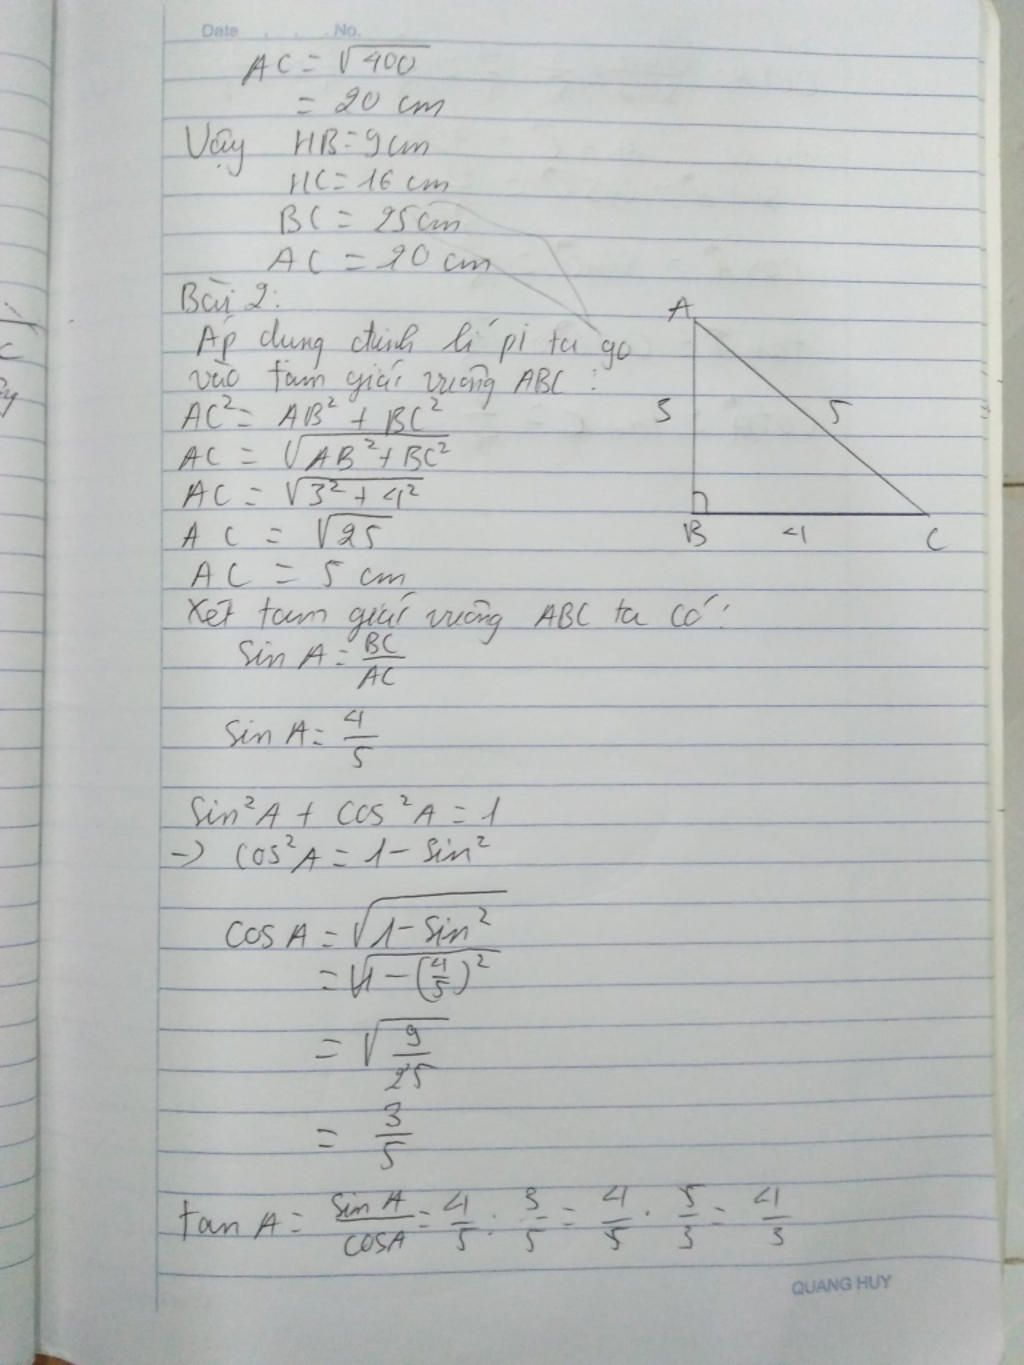 Date . . . No.
AC = √400
= 20 cm
Vậy HB = 9cm
HC = 16 cm
BC = 25cm
AC = 20 cm
Bài 2:
Áp dụng định lí pi ta go
vào tam giác vuông ABC :
AC² = AB² + BC²
AC = √(AB² + BC²)
AC = √(3² + 4²)
AC = √25
AC = 5 cm
A
3
5
B
4
C
Xét tam giác vuông ABC ta có :
Sin A = BC/AC
Sin A = 4/5
Sin²A + Cos²A = 1
-> Cos²A = 1 - Sin²
Cos A = √(1 - Sin²)
= √(1 - (4/5)²)
= √(9/25)
= 3/5
tan A = Sin A/COSA = 4/5 : 3/5 = 4/5 . 5/3 = 4/3
QUANG HUY